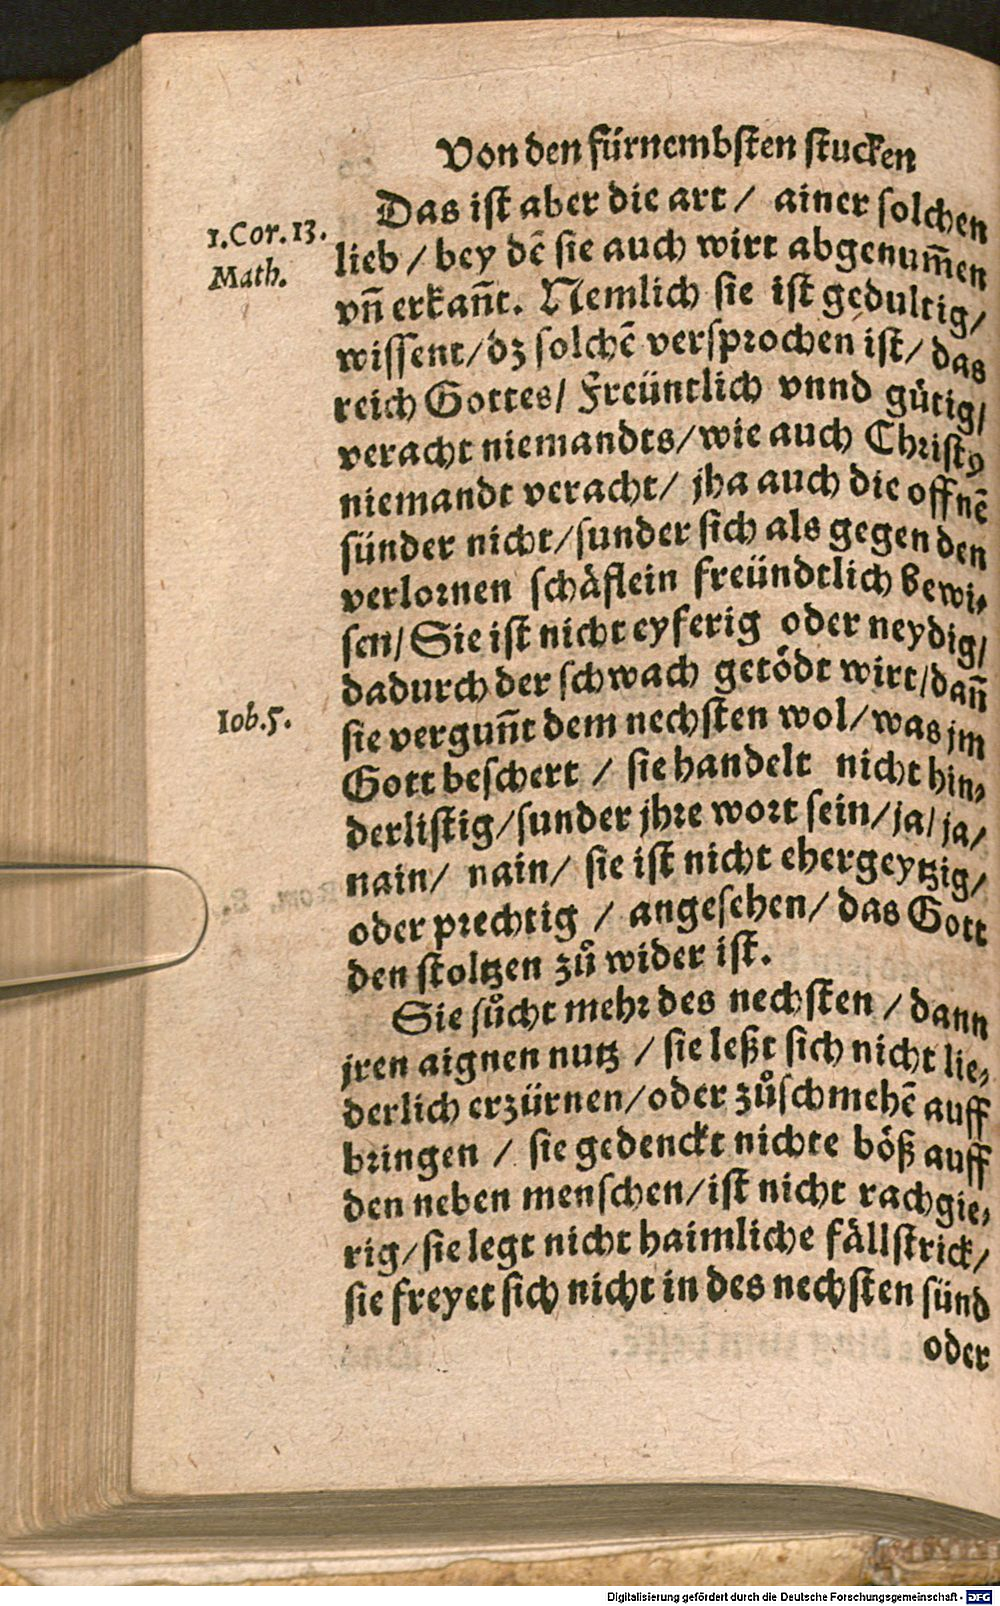 Von den fürnembsten stucken
Das ist aber die art / ainer solchen
1.Cor.13.
Math.
lieb / bey dē sie auch wirt abgenum̄en
vn̄ erkan̄t. Nemlich sie ist gedultig/
wissent/dz solchē versprochen ist/ das
reich Gottes/ Freüntlich vnnd gütig/
veracht niemandts/wie auch Christꝰ
niemandt veracht/ jha auch die offnē
sünder nicht/sunder sich als gegen den
verlornen schäflein freündtlich bewi-
sen/Sie ist nicht eyferig oder neydig/
dadurch der schwach getödt wirt/dan̄
Iob.5.
sie vergun̄t dem nechsten wol/was jm
Gott beschert / sie handelt nicht hin-
derlistig/sunder jhre wort sein/ja/ja/
nain/ nain/ sie ist nicht ehergeytzig/
oder prechtig / angesehen/ das Gott
den stoltzen zů wider ist.
Sie sůcht mehr des nechsten / dann
jren aignen nutz / sie leßt sich nicht lie-
derlich erzürnen/oder zůschmehē auff
bringen / sie gedenckt nichte böß auff
den neben menschen/ist nicht rachgie-
rig/sie legt nicht haimliche fällstrick/
sie freyet sich nicht in des nechsten sünd
oder
Digitalisierung gefördert durch die Deutsche Forschungsgemeinschaft - DFG